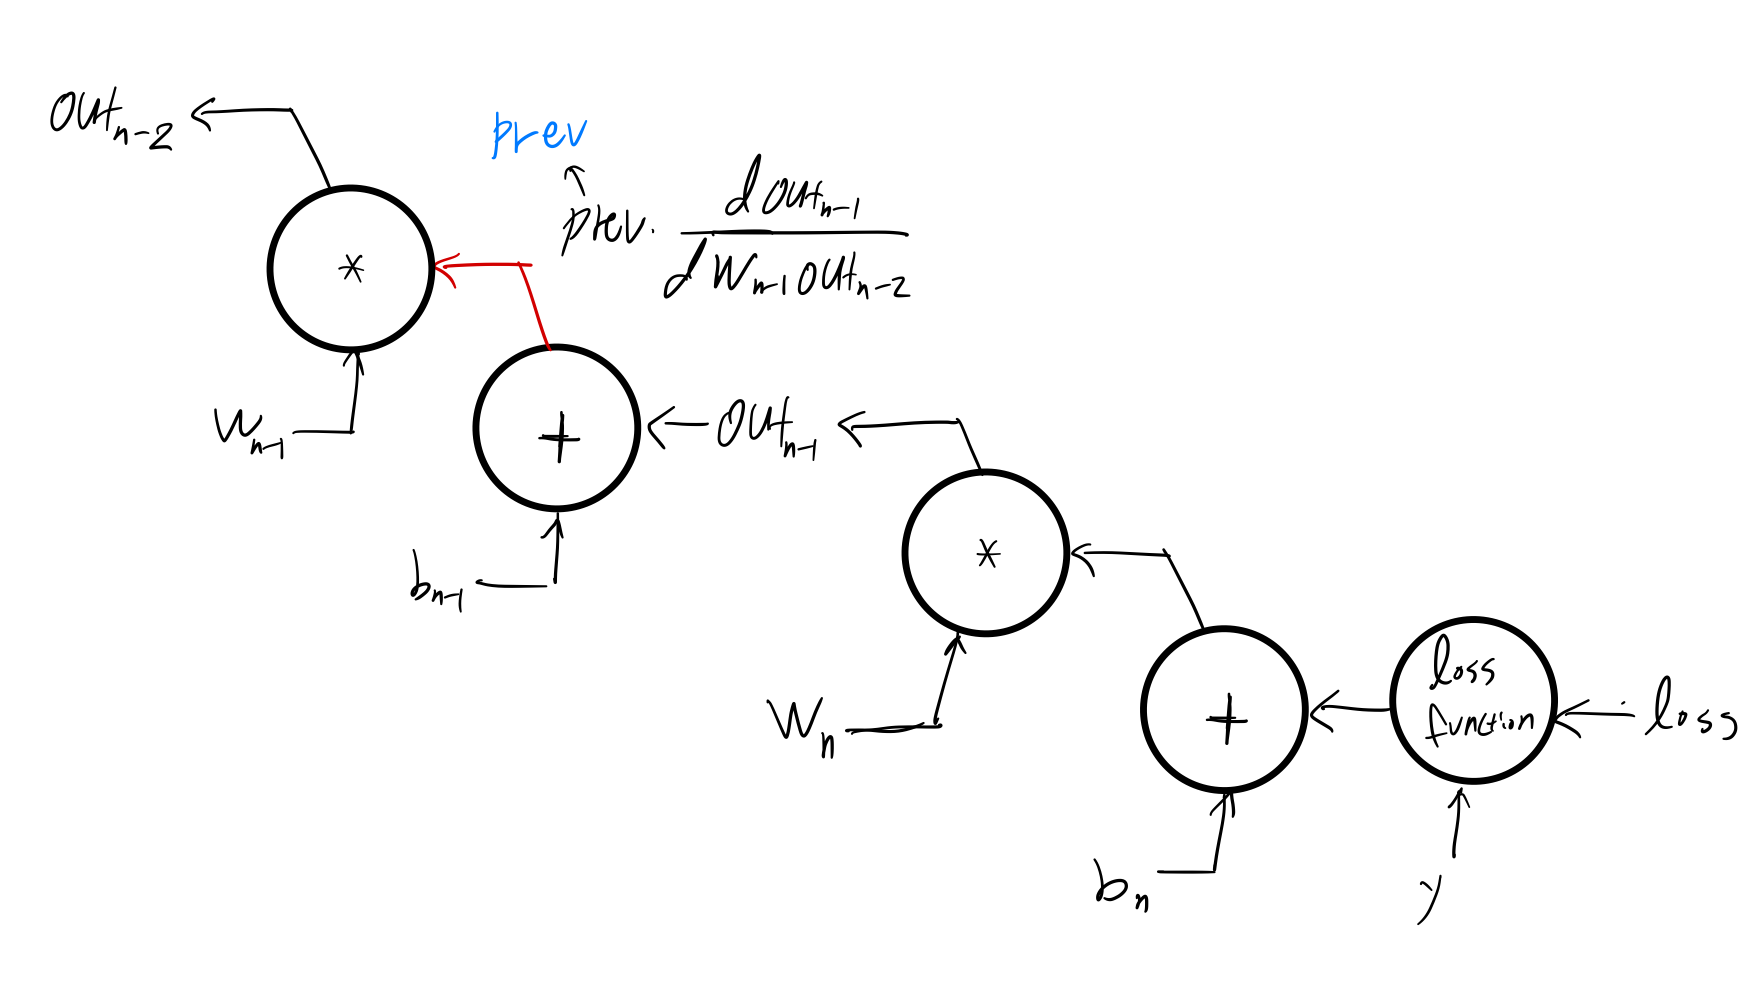 out_{n-2}
prev
prev. \frac{d out_{n-1}}{d W_{n-1} out_{n-2}}
*
W_{n-1}
+
out_{n-1}
b_{n-1}
*
W_n
+
loss
function
loss
b_n
y